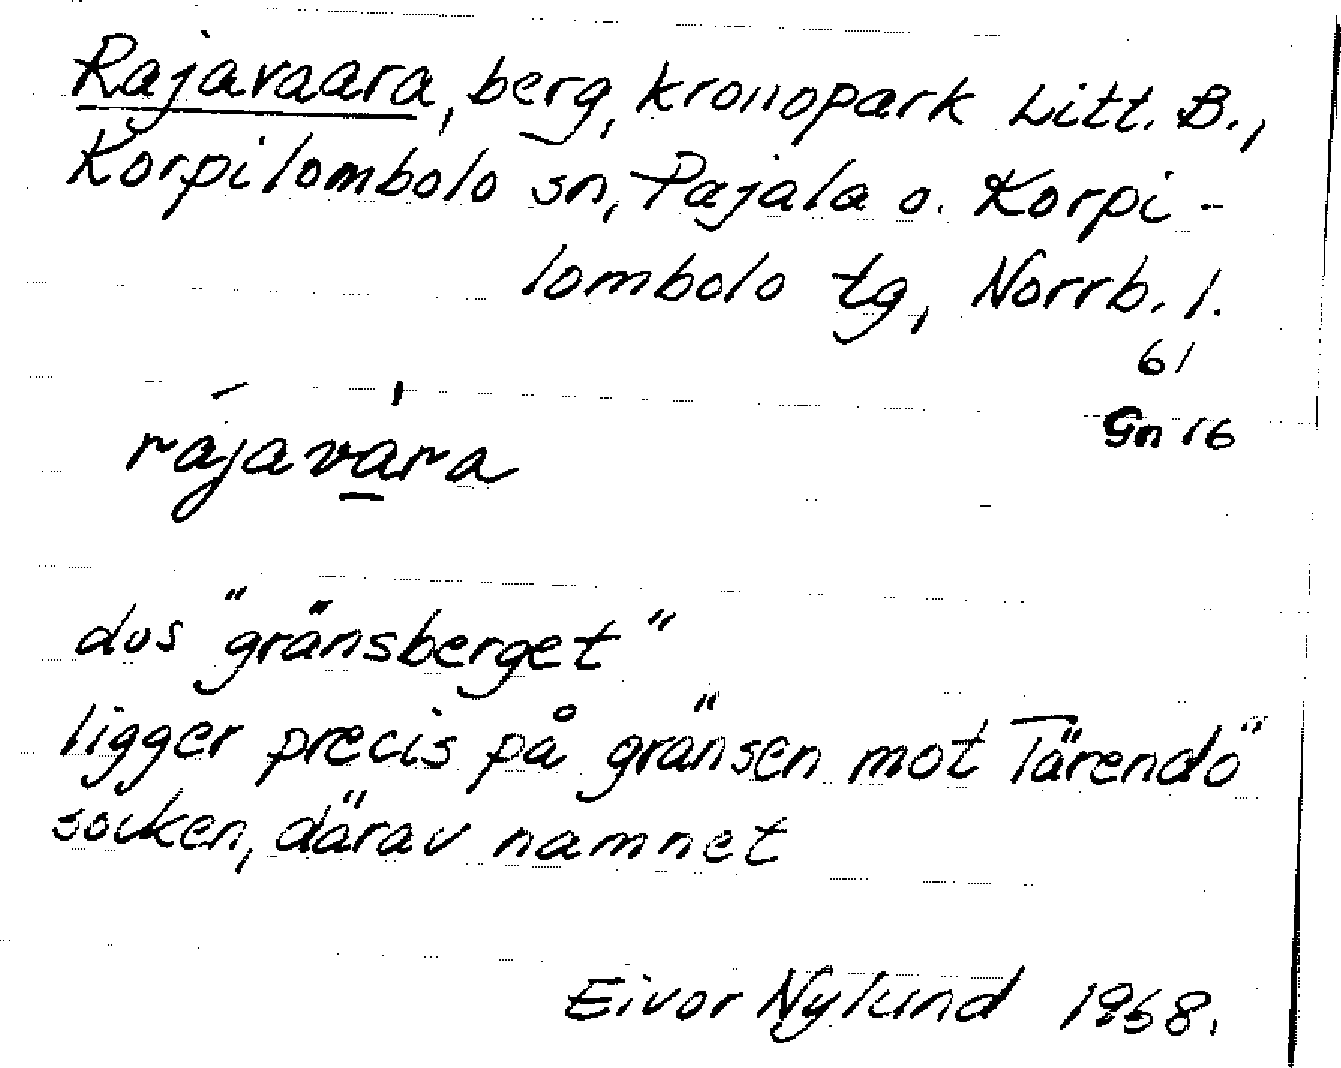 Rajavaara, berg, kronopark Litt. B.,
Korpilombolo sn, Pajala o. Korpi-
lombolo tg, Norrb. l.
61
Gn 16
rájav̱a̍ra
dvs "gränsberget"
ligger precis på gränsen mot Tärendö
socken, därav namnet
Eivor Nylund 1968.